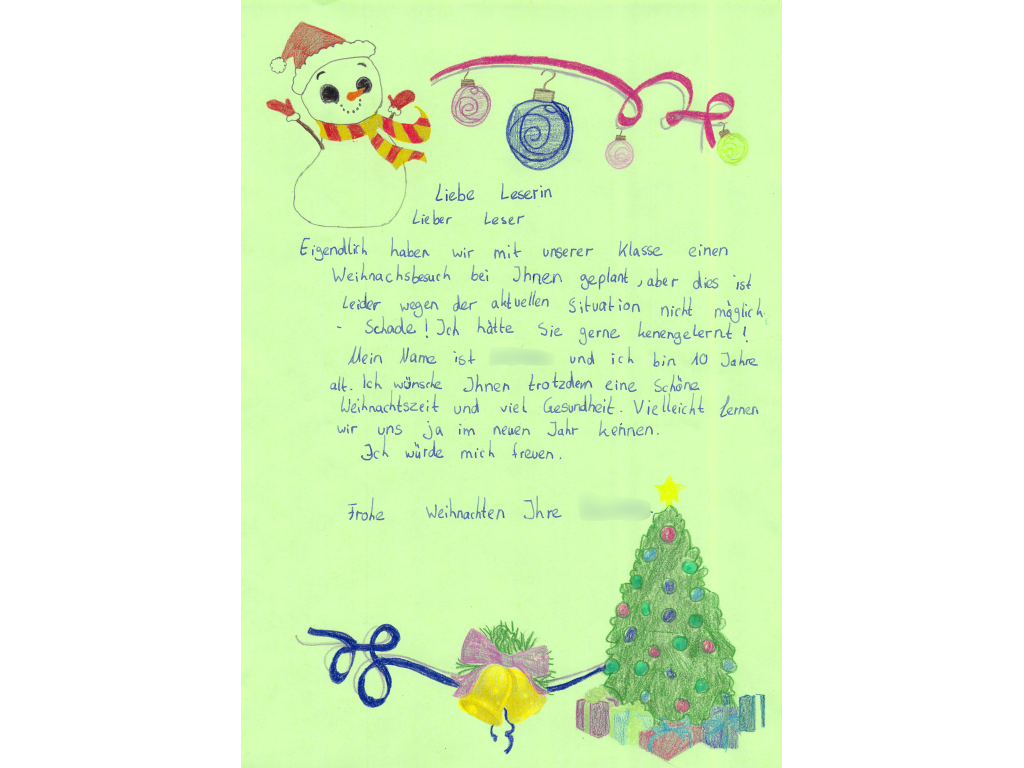 Liebe Leserin
Lieber Leser
Eigendlich haben wir mit unserer Klasse einen
Weihnachsbesuch bei Ihnen geplant, aber dies ist
Leider wegen der aktuellen Situation nicht möglich.
- Schade! Ich hätte Sie gerne kenengelernt!
Mein Name ist und ich bin 10 Jahre
alt. Ich wünsche Ihnen trotzdem eine Schöne
Weihnachtszeit und viel Gesundheit. Vielleicht lernen
wir uns ja im neuen Jahr kennen.
Ich würde mich freuen.
Frohe Weihnachten Ihre